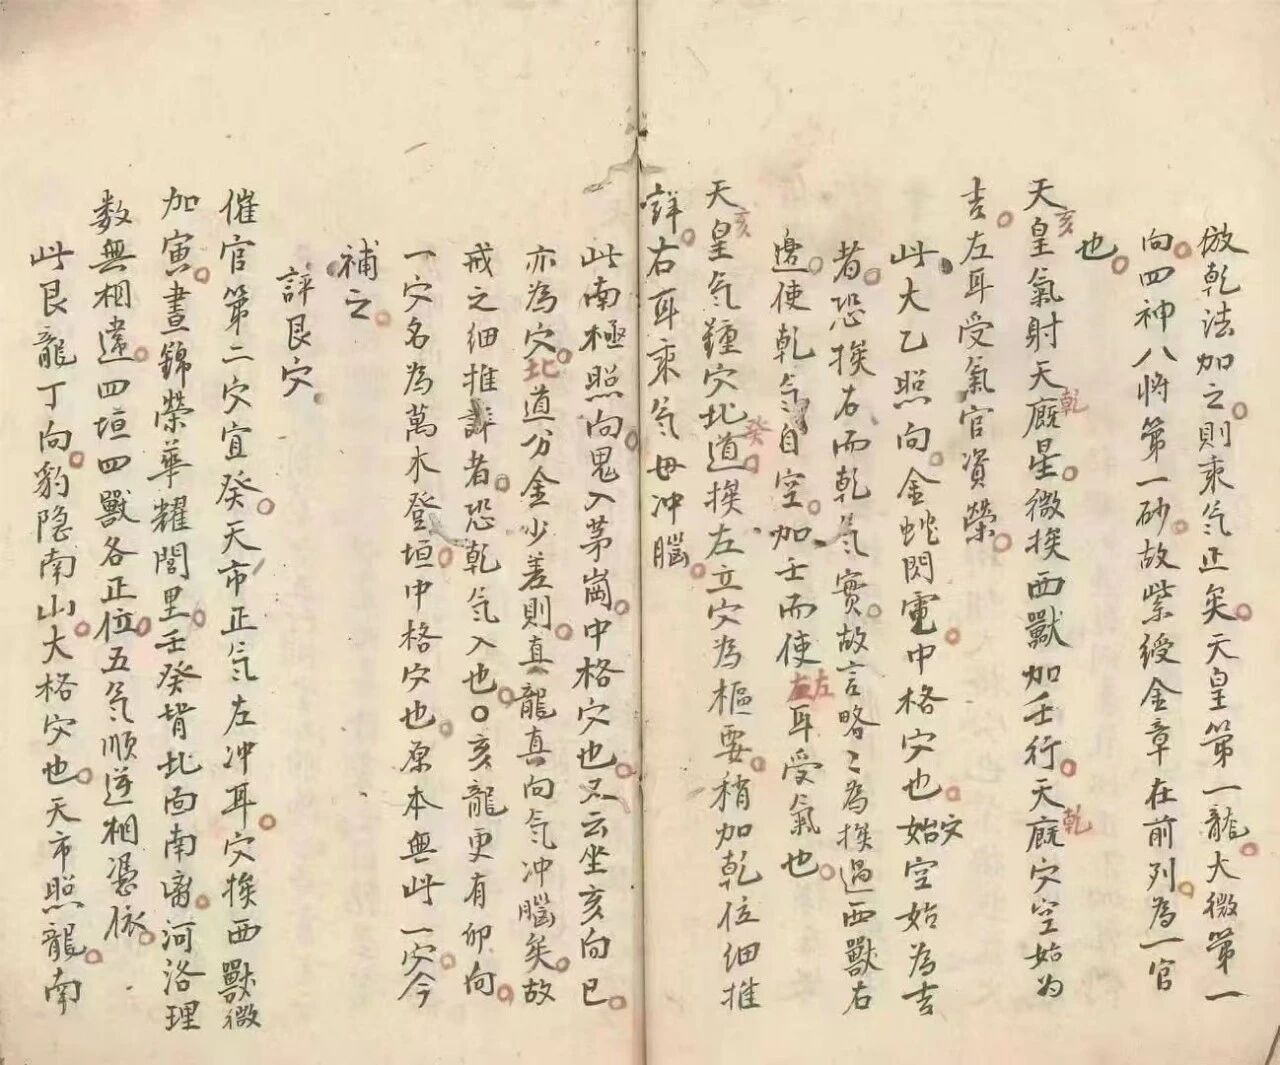 倣乾法加之則乘气正矣天皇第一龍大微第一
向四神八將第一砂故紫綬金章在前列為一官
也
天皇氣射天廐星微挨西獸加壬行天廐穴空始為
亥
乾
乾
吉左耳受氣官資榮
此大乙照向金蛇閃電中格穴也始空始為吉
穴
者恐挨右而乾气實故言略〻為挨過西獸右
邊使乾气自空加壬而使耳受氣也
左
天皇气鍾穴北道挨左立穴為樞要稍加乾位細推
亥
癸
詳右耳乘气毋冲腦
此南極照向鬼入茅崗中格穴也又云坐亥向巳
亦為穴北道分金少差則真龍真向气冲腦矣故
戒之細推詳者恐乾气入也〇亥龍更有卯向
一穴名為萬木登垣中格穴也原本無此一穴今
補之
評艮穴
催官第二穴宜癸天市正气左冲耳穴挨西獸微
加寅晝錦榮華耀閭里壬癸背北面南离河洛理
数無相違四垣四獸各正位五气順逆相憑依
此艮龍丁向豹隐南山大格穴也天市照龍南